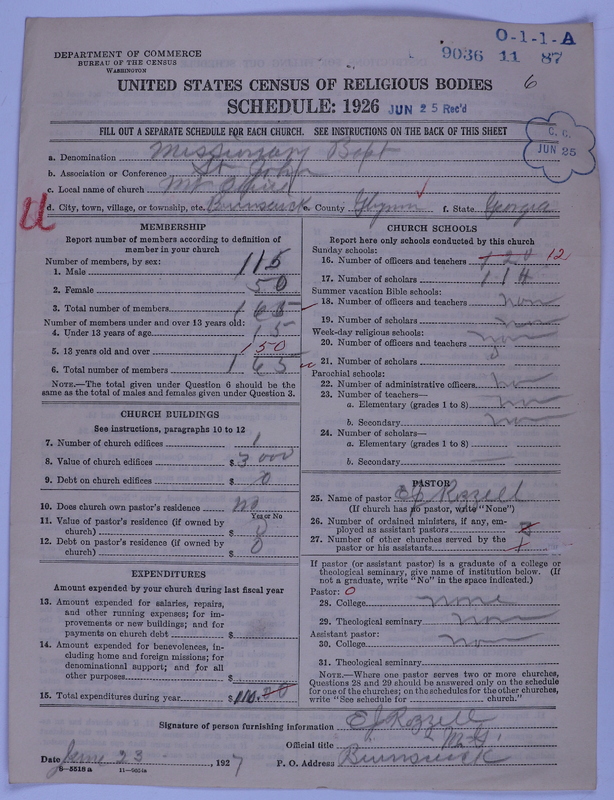 O-1-1-A
9036 11 87
DEPARTMENT OF COMMERCE
BUREAU OF THE CENSUS
WASHINGTON
UNITED STATES CENSUS OF RELIGIOUS BODIES 6
SCHEDULE: 1926 JUN 25 Rec'd
FILL OUT A SEPARATE SCHEDULE FOR EACH CHURCH. SEE INSTRUCTIONS ON THE BACK OF THIS SHEET
C. C.
JUN 25
a. Denomination Missionary Bapt
b. Association or Conference St John
c. Local name of church Mt
d. City, town, village, or township, etc. Brunswick e. County Glynn f. State Georgia
U
MEMBERSHIP
Report number of members according to definition of
member in your church
Number of members, by sex:
1. Male 115
2. Female 50
3. Total number of members 165
Number of members under and over 13 years old:
4. Under 13 years of age 15
5. 13 years old and over 150
6. Total number of members 165
NOTE.—The total given under Question 6 should be the
same as the total of males and females given under Question 3.
CHURCH BUILDINGS
See instructions, paragraphs 10 to 12
7. Number of church edifices 1
8. Value of church edifices $3000
9. Debt on church edifices $0
10. Does church own pastor's residence no
Yes or No
11. Value of pastor's residence (if owned by
church) $0
12. Debt on pastor's residence (if owned by
church) $0
EXPENDITURES
Amount expended by your church during last fiscal year
13. Amount expended for salaries, repairs,
and other running expenses; for im-
provements or new buildings; and for
payments on church debt $
14. Amount expended for benevolences, in-
cluding home and foreign missions; for
denominational support; and for all
other purposes $
15. Total expenditures during year $110.30
CHURCH SCHOOLS
Report here only schools conducted by this church
Sunday schools:
16. Number of officers and teachers 12
17. Number of scholars 114
Summer vacation Bible schools:
18. Number of officers and teachers non
19. Number of scholars non
Week-day religious schools:
20. Number of officers and teachers non
21. Number of scholars
Parochial schools:
22. Number of administrative officers no
23. Number of teachers—
a. Elementary (grades 1 to 8) non
b. Secondary non
24. Number of scholars—
a. Elementary (grades 1 to 8)
b. Secondary
PASTOR
25. Name of pastor EJ Rozzell
(If church has no pastor, write "None")
26. Number of ordained ministers, if any, em-
ployed as assistant pastors
27. Number of other churches served by the
pastor or his assistants
If pastor (or assistant pastor) is a graduate of a college or
theological seminary, give name of institution below. (If
not a graduate, write "No" in the space indicated.)
Pastor: 0
28. College none
29. Theological seminary non
Assistant pastor:
30. College non
31. Theological seminary
NOTE.—Where one pastor serves two or more churches,
Questions 28 and 29 should be answered only on the schedule
for one of the churches; on the schedules for the other churches,
write "See schedule for church."
Signature of person furnishing information EJ Rozzell
Official title
Date June 23, 1927 P. O. Address Brunswick
8—5518 a